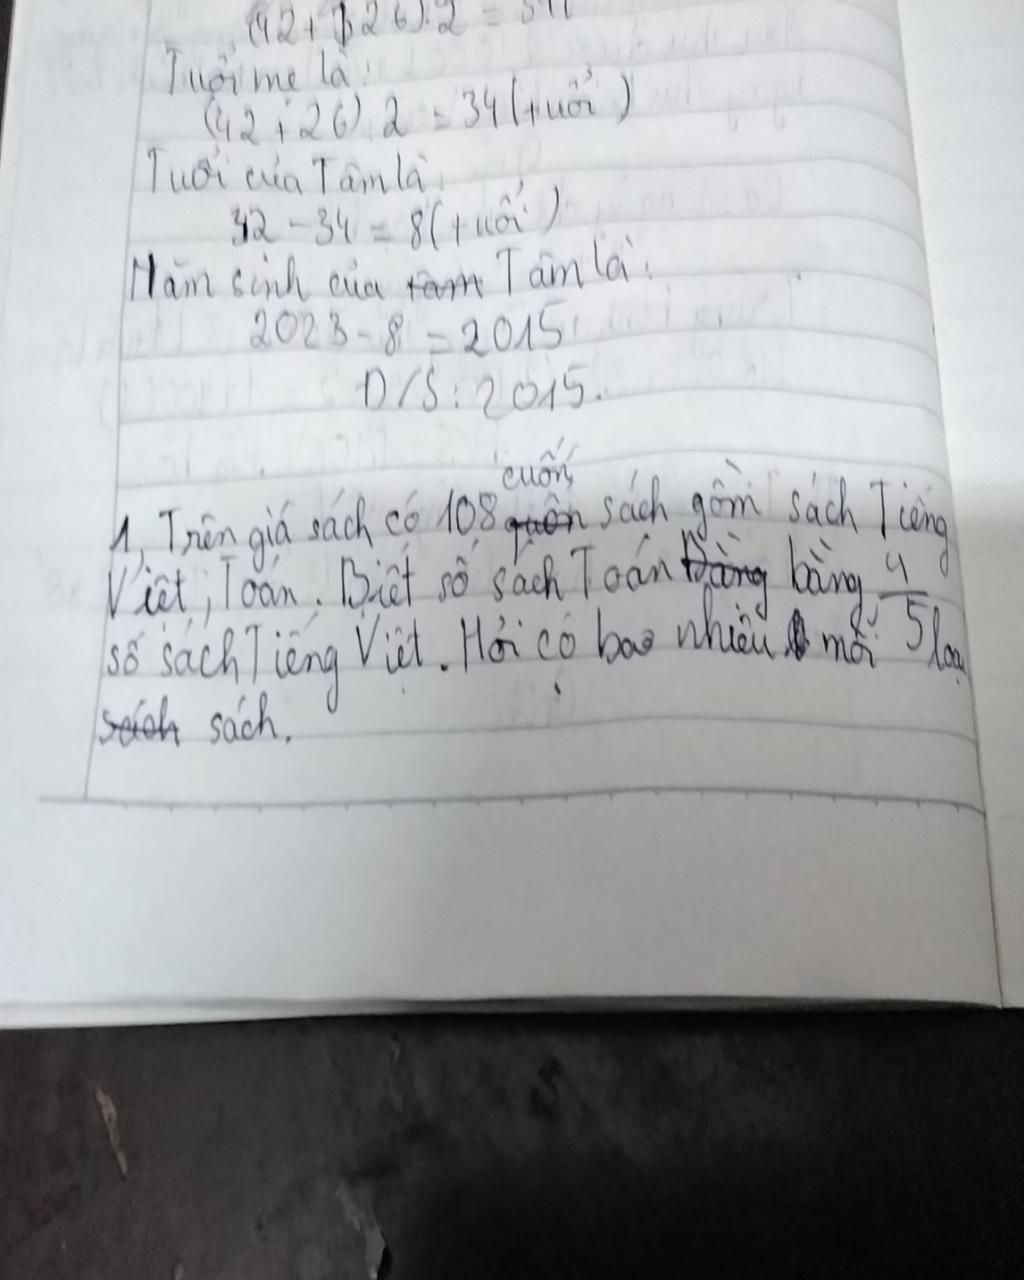 (42+26):2 = 34
Tuổi mẹ là:
(42+26):2 = 34 (tuổi)
Tuổi của Tâm là:
42 - 34 = 8 (tuổi)
Năm sinh của Tâm là:
2023 - 8 = 2015
Đ/S: 2015.
cuốn
1, Trên giá sách có 108 sách gồm sách Tiếng
Việt, Toán. Biết số sách Toán bằng 4/5
số sách Tiếng Việt. Hỏi có bao nhiêu mỗi loại
sách.